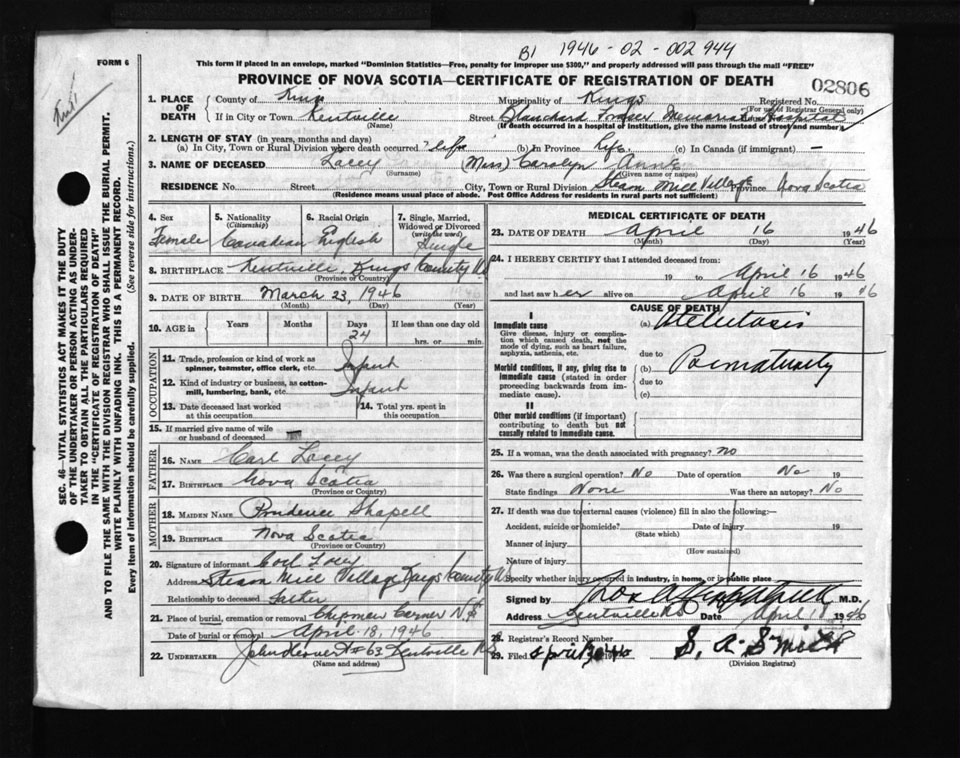 B1 1946-02-002944
FORM 6
This form if placed in an envelope, marked "Dominion Statistics—Free, penalty for improper use $300," and properly addressed will pass through the mail "FREE"
PROVINCE OF NOVA SCOTIA—CERTIFICATE OF REGISTRATION OF DEATH
02806
1. PLACE OF DEATH
County of Kings
Municipality of Kings
Registered No.
(For use of Registrar General only)
If in City or Town Kentville
(Name)
Street Blanchard Fraser Memorial Hospital
(If death occurred in a hospital or institution, give the name instead of street and number)
2. LENGTH OF STAY (in years, months and days)
(a) In City, Town or Rural Division where death occurred life (b) In Province life. (c) In Canada (if immigrant) —
3. NAME OF DECEASED Lacey (Miss) Carolyn Anne
(Surname) (Given name or names)
RESIDENCE No. Street City, Town or Rural Division Steam Mill Village Province Nova Scotia
(Residence means usual place of abode. Post Office Address for residents in rural parts not sufficient)
4. Sex
Female
5. Nationality (Citizenship)
Canadian
6. Racial Origin
English
7. Single, Married, Widowed or Divorced (write the word)
Single
8. BIRTHPLACE Kentville, Kings County N.S.
(Province or Country)
9. DATE OF BIRTH March 23, 1946
(Month) (Day) (Year)
10. AGE in Years Months Days If less than one day old
24 hrs. or min.
OCCUPATION
11. Trade, profession or kind of work as spinner, teamster, office clerk, etc. Infant
12. Kind of industry or business, as cotton-mill, lumbering, bank, etc. Infant
13. Date deceased last worked at this occupation
14. Total yrs. spent in this occupation
15. If married give name of wife or husband of deceased
FATHER
16. Name Carl Lacey
17. Birthplace Nova Scotia
(Province or Country)
MOTHER
18. Maiden Name Prudence Shapell
19. Birthplace Nova Scotia
(Province or Country)
20. Signature of informant Carl Lacey
Address Steam Mill Village Kings County N.S.
Relationship to deceased father
21. Place of burial, cremation or removal Chipman Corner N.S.
Date of burial or removal April 18, 1946
22. UNDERTAKER # 63 Kentville N.S.
(Name and address)
MEDICAL CERTIFICATE OF DEATH
23. DATE OF DEATH April 16 1946
(Month) (Day) (Year)
24. I HEREBY CERTIFY that I attended deceased from:
19 to April 16 1946
and last saw her alive on April 16 1946
CAUSE OF DEATH
I
Immediate cause
Give disease, injury or complication which caused death, not the mode of dying, such as heart failure, asphyxia, asthenia, etc.
(a) Atelectasis
due to
Morbid conditions, if any, giving rise to immediate cause (stated in order proceeding backwards from immediate cause).
(b) Prematurity
due to
(c)
II
Other morbid conditions (if important) contributing to death but not causally related to immediate cause.
25. If a woman, was the death associated with pregnancy? no
26. Was there a surgical operation? No Date of operation No 19
State findings None Was there an autopsy? No
27. If death was due to external causes (violence) fill in also the following:—
Accident, suicide or homicide? Date of injury 19
(State which)
Manner of injury
(How sustained)
Nature of injury
Specify whether injury occurred in industry, in home, or in public place
Signed by M.D.
Address Kentville N.S. Date April 18 1946
28. Registrar's Record Number
29. Filed S. A. Smith
(Division Registrar)
SEC. 46—VITAL STATISTICS ACT MAKES IT THE DUTY OF THE UNDERTAKER OR PERSON ACTING AS UNDERTAKER TO OBTAIN ALL THE PARTICULARS REQUIRED IN THE "CERTIFICATE OF REGISTRATION OF DEATH" AND TO FILE THE SAME WITH THE DIVISION REGISTRAR WHO SHALL ISSUE THE BURIAL PERMIT.
WRITE PLAINLY WITH UNFADING INK. THIS IS A PERMANENT RECORD.
Every item of information should be carefully supplied. (See reverse side for instructions.)